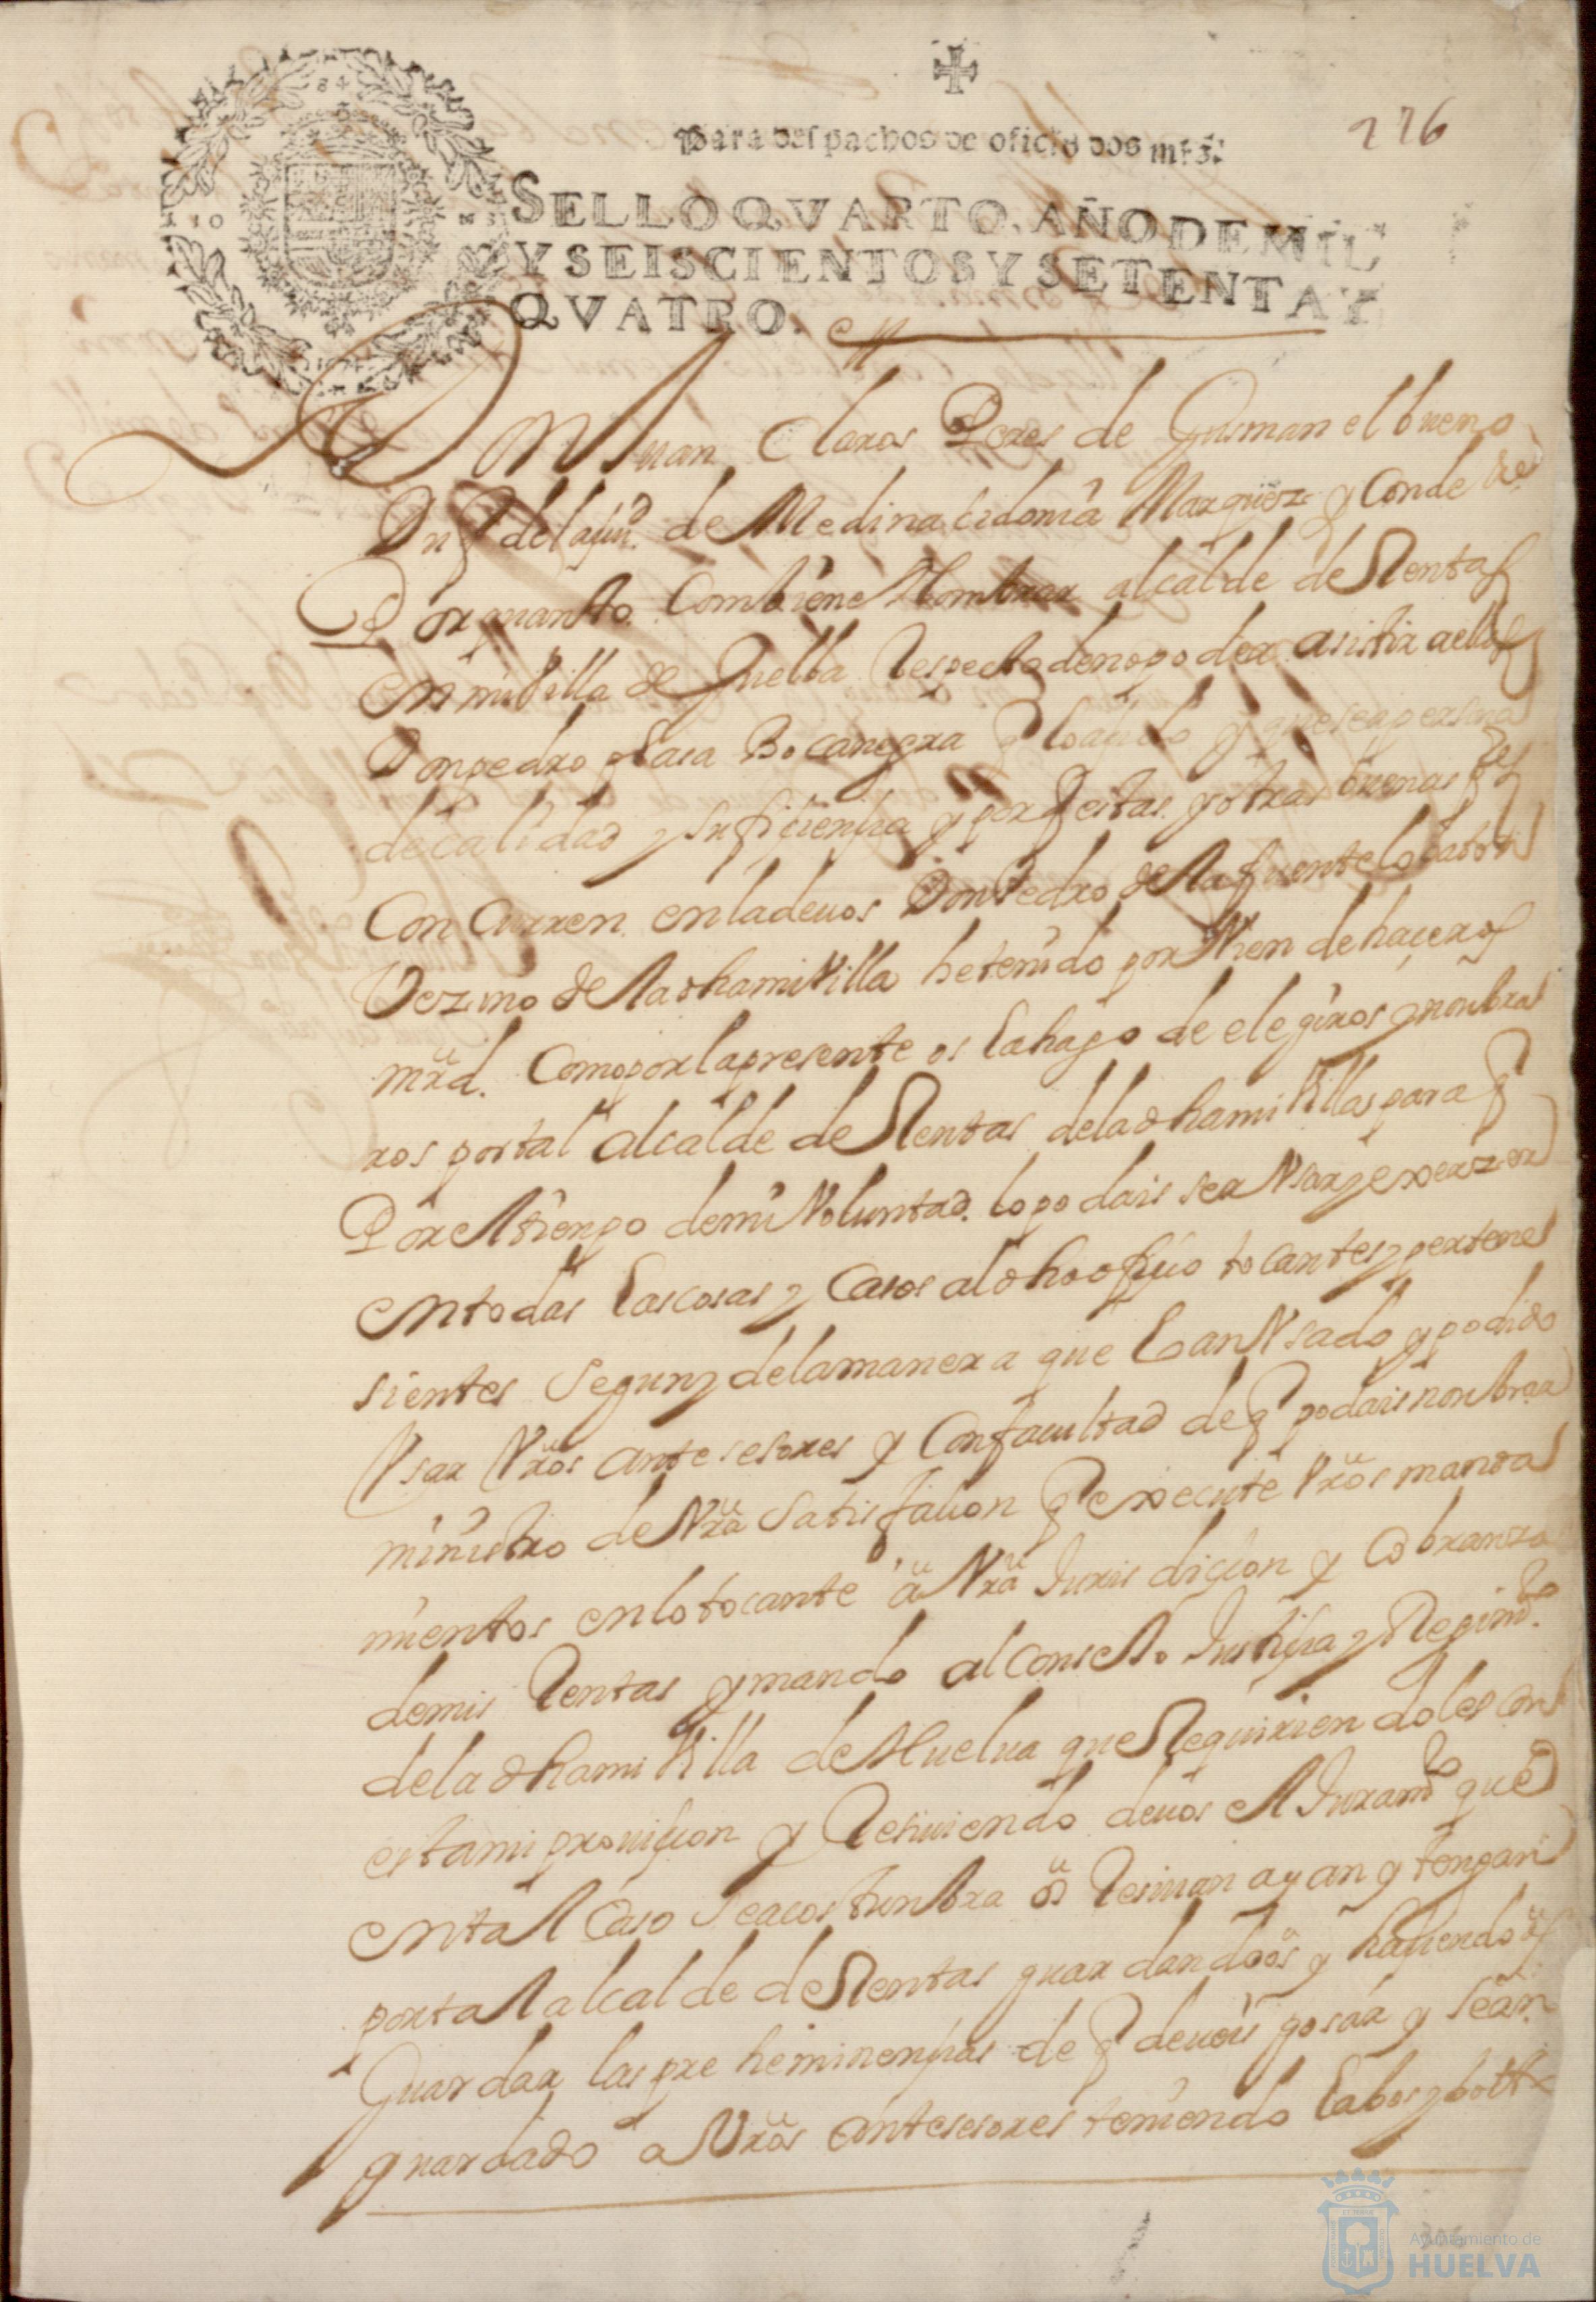 276
Para despachos de oficio dos mrs.
SELLO QVARTO, AÑO DE MIL
Y SEISCIENTOS Y SETENTA Y
QVATRO.
Dn Juan Claros Peres de Gusman el bueno
de Medina cidonia Marques y Conde
Por quanto Combiene Nombrar alcalde de Rentas
en mi Villa de Guelba Respecto de no poder asistir a ellas
Don pedro Bocanegra y que sea persona
de calidad y sufiçiençia y por q estas y otras buenas
Con Curren en la de uos Don Pedro de la fuente
Vezino de la dha mi Villa he tenido por Vien de haçeros
mrd. Como por la presente os la hago de elegiros y nonbra
ros por tal alcalde de Rentas de la dha mi Villa para q
Por el tienpo de mi Voluntad. lo podais ser Vsar y exerzer
en todas las cosas y Casos al dho ofiçio tocantes y pertene
sientes segun y de la manera que lo an Vsado y podido
Vsar Vros antesesores y Con facultad de q podais nonbrar
ministro de Vra Satisfaçion q execute Vros manda
mientos en lo tocante a Vra Jurisdiçion y Cobranza
de mis Rentas y mando al consello Justiçia y Regimto.
de la dha mi Villa de Huelua que Requiriendoles con
esta mi prouiçion y Resiuiendo de uos el Juramto que
en tal Caso se acostunbra os Resiuan ayan y tengan
por tal alcalde de Rentas guardandoos y haçiendo os
Guardar las preheminençias de q deueis gosar y sean
guardado a Vros antesesores teniendo
Ayuntamiento de
HUELVA